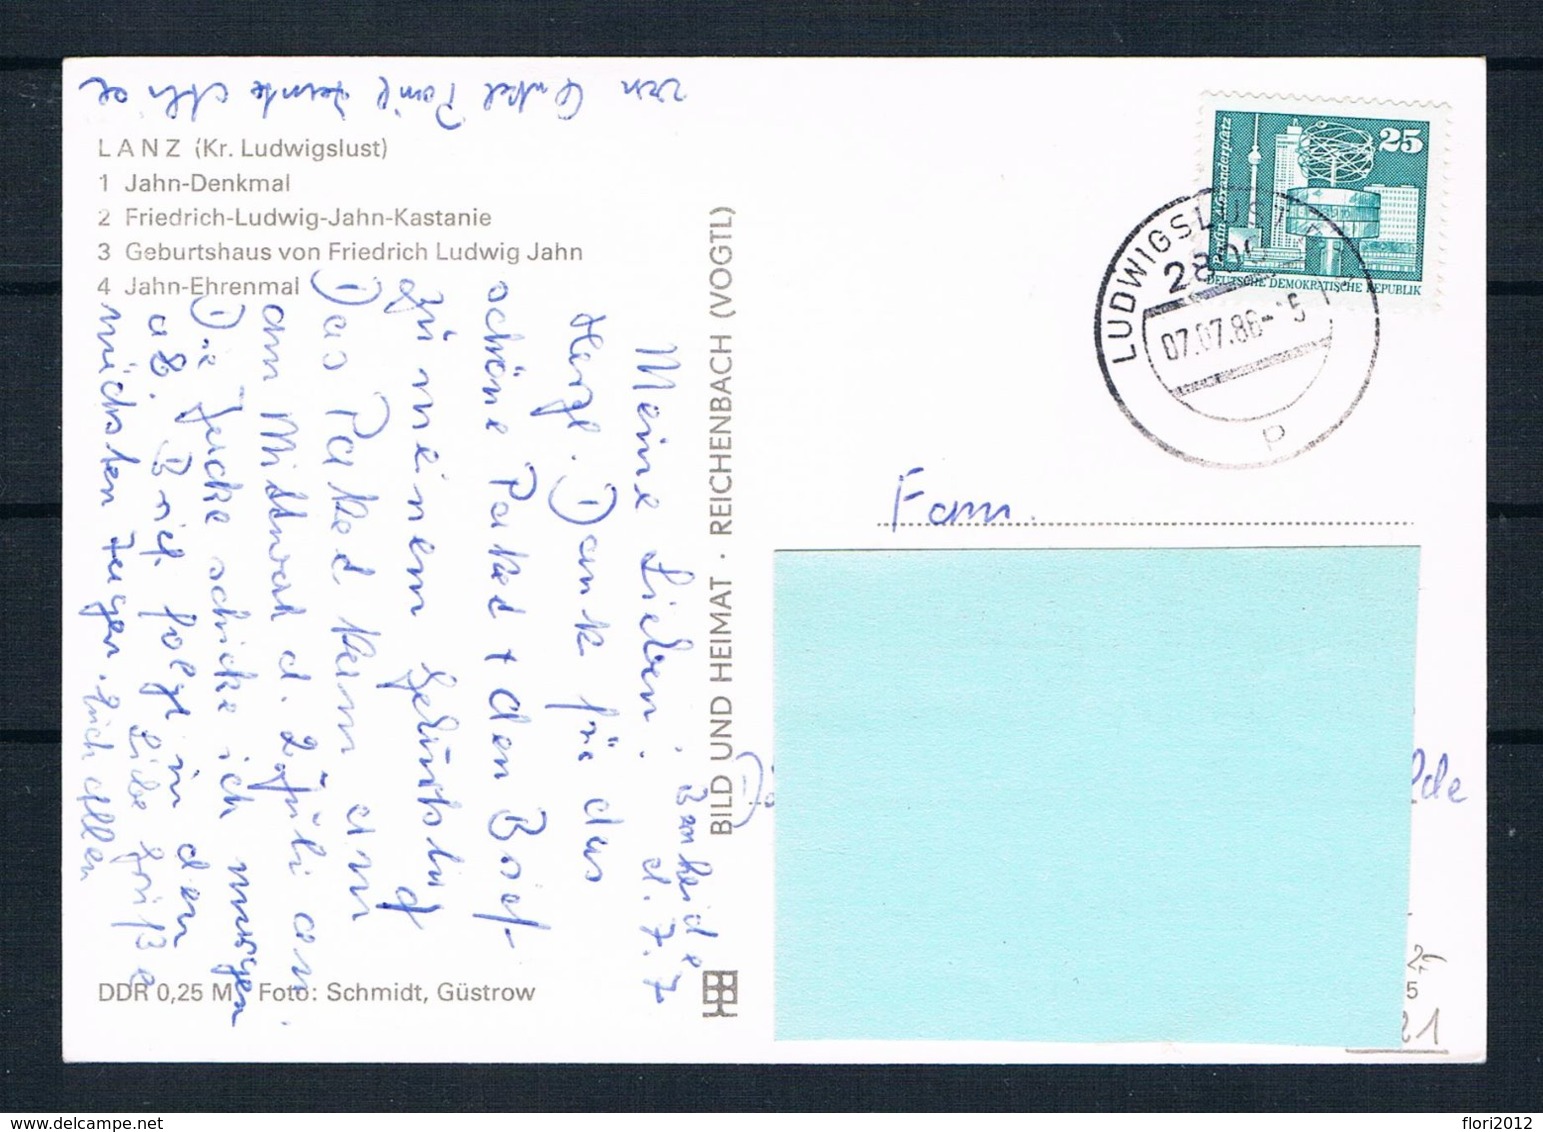 LANZ (Kr. Ludwigslust)
1 Jahn-Denkmal
2 Friedrich-Ludwig-Jahn-Kastanie
3 Geburtshaus von Friedrich Ludwig Jahn
4 Jahn-Ehrenmal
d. 7.7
Meine Lieben.
Herzl. Dank für das
schöne Paket + den Brief
zu meinem Geburtstag
Das Paket kam am
am Mittwoch d. 2 Juli an.
Die Jacke schicke ich morgen
ab. Brief folgt in den
nächsten Tagen. Liebe Grüße
Euch allen
von Onkel
DDR 0,25 M Foto: Schmidt, Güstrow
BILD UND HEIMAT · REICHENBACH (VOGTL)
25
DEUTSCHE DEMOKRATISCHE REPUBLIK
LUDWIGSLUST
2800
07.07.86
p
Fam.
lde
5
21
flori2012